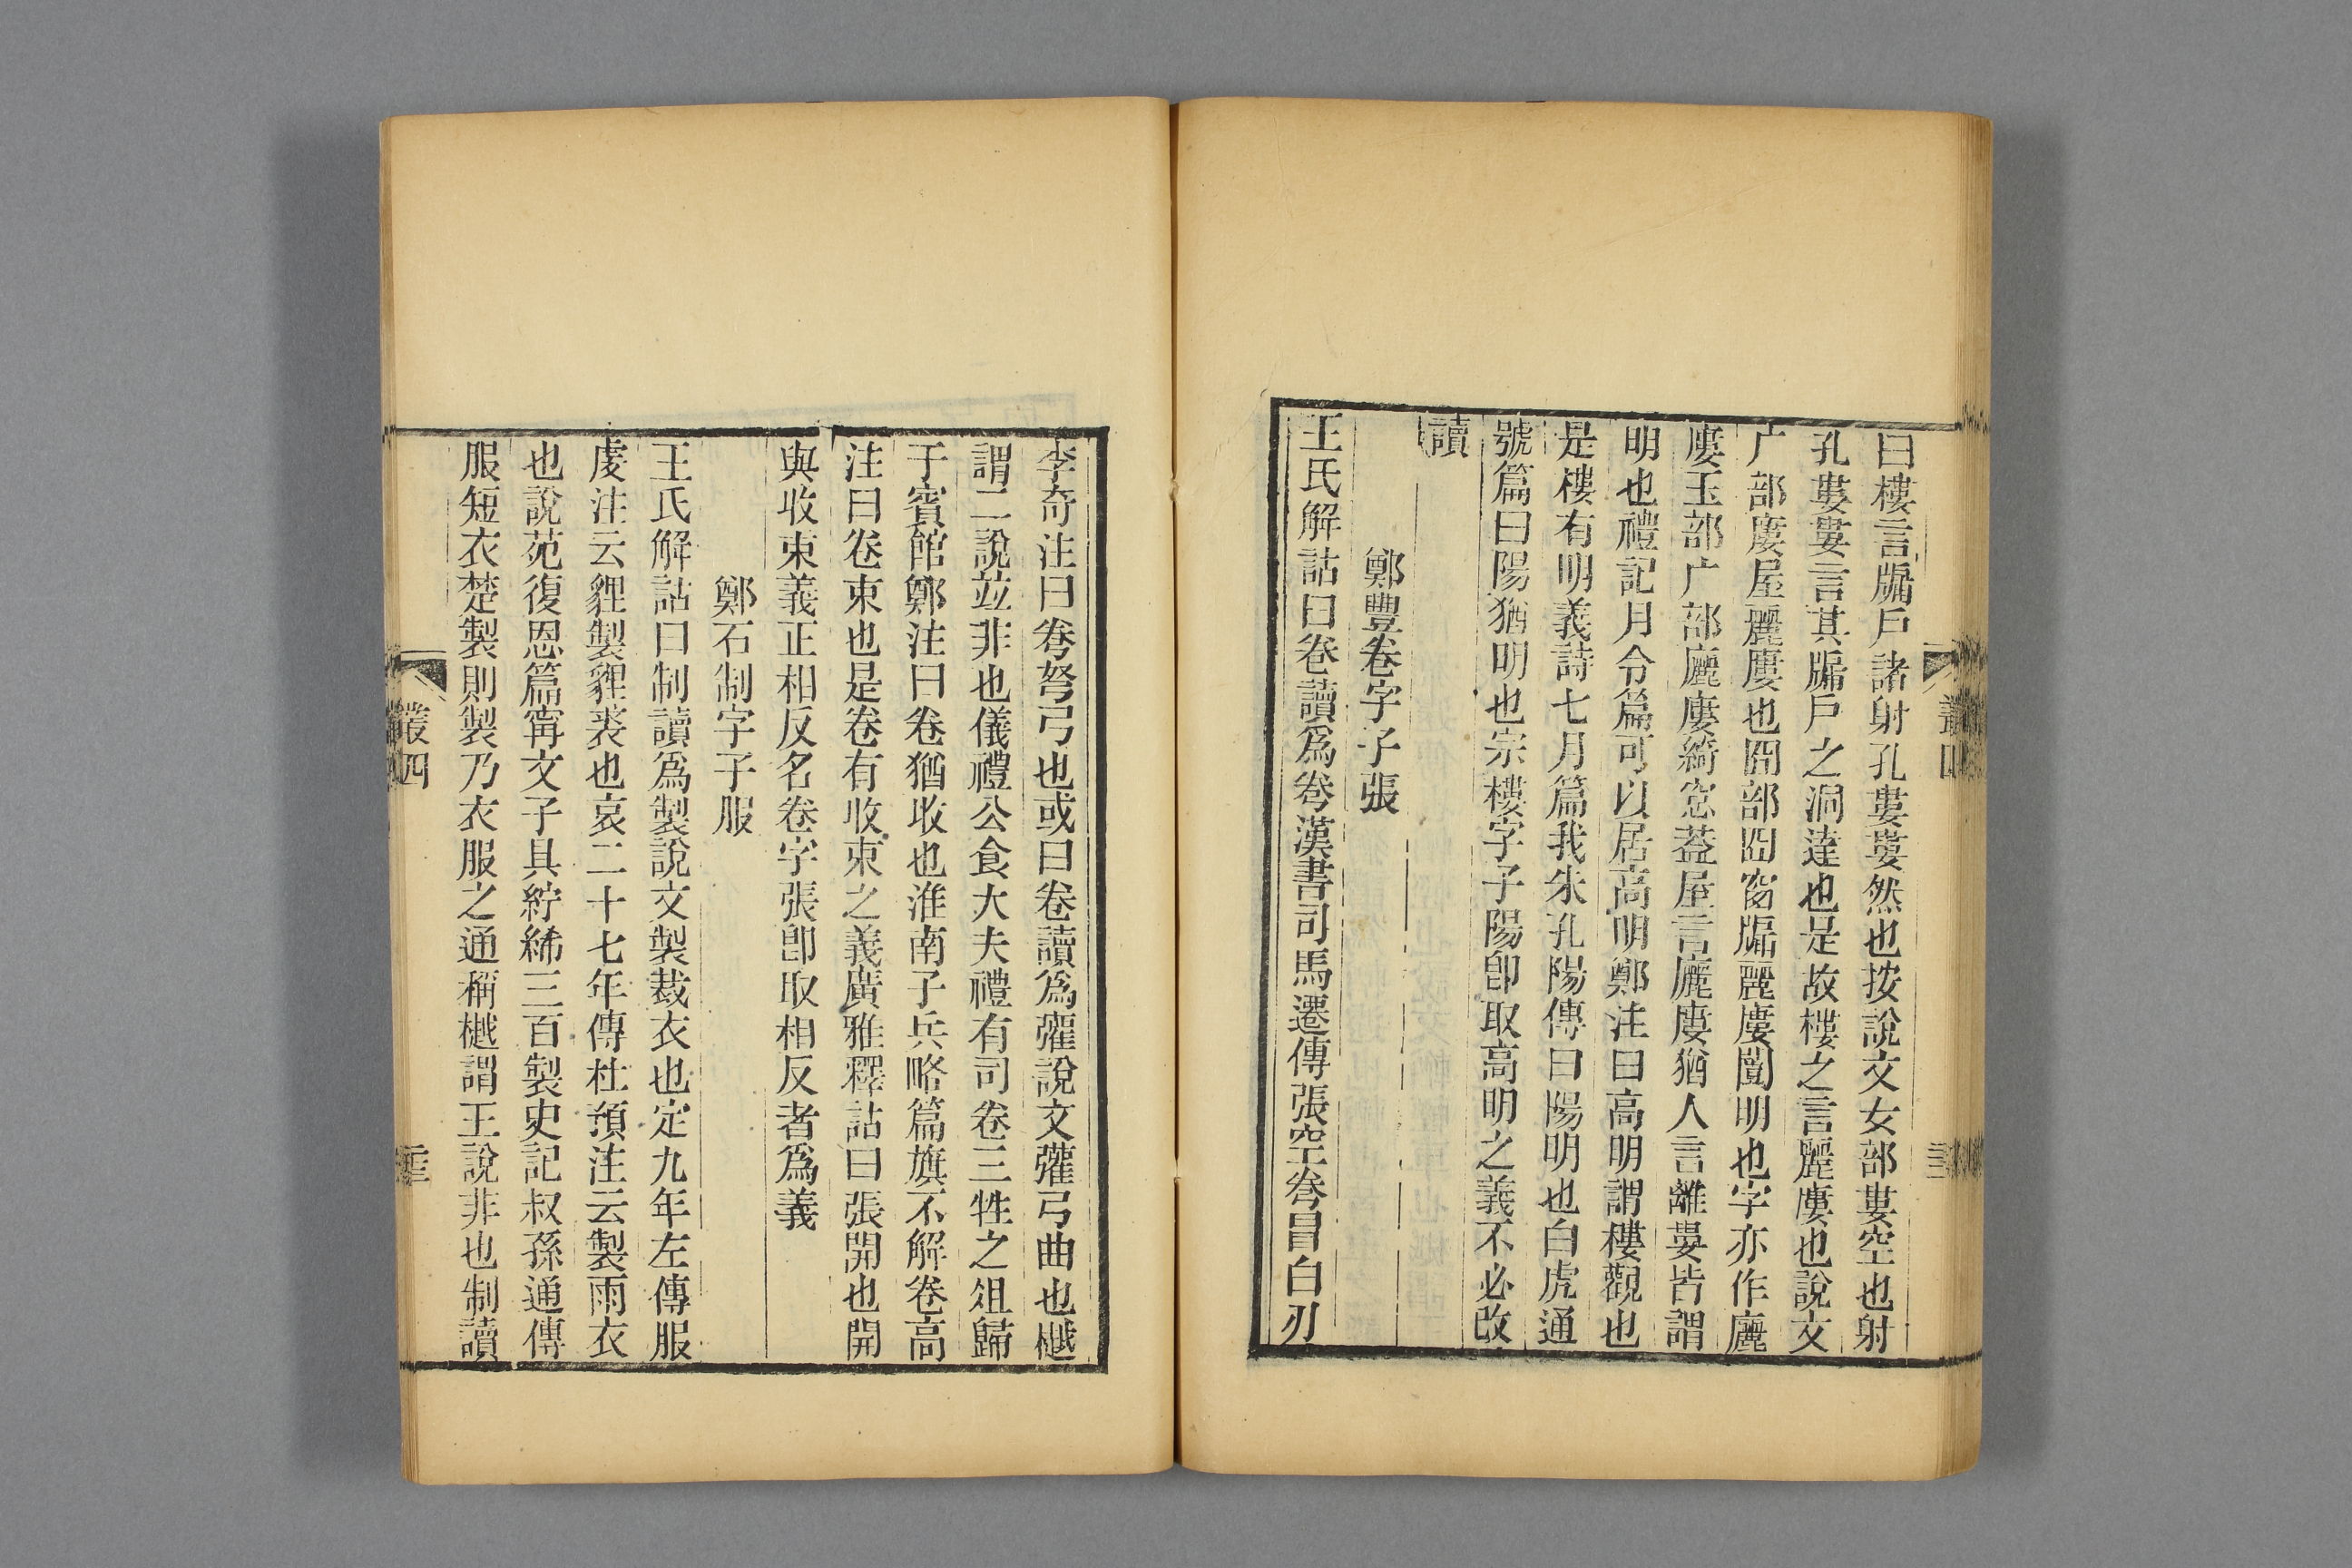 曰樓言牖戶諸射孔婁婁然也按說文女部婁空也射
孔婁婁言其牖戶之洞達也是故樓之言麗廔也說文
广部廔屋麗廔也囧部囧窗牖麗廔闓明也字亦作廲
廔玉部广部廲廔綺窓葢屋言廲廔猶人言離婁皆謂
明也禮記月令篇可以居高明鄭注曰高明謂樓觀也
是樓有明義詩七月篇我朱孔陽傳曰陽明也白虎通
號篇曰陽猶明也宗樓字子陽卽取高明之義不必改
讀
鄭豐卷字子張
王氏解詁曰卷讀爲弮漢書司馬遷傳張空弮冒白刃
叢四
李奇注曰弮弩弓也或曰卷讀爲彏說文彏弓曲也樾
謂二說竝非也儀禮公食大夫禮有司卷三牲之俎歸
于賓館鄭注曰卷猶收也淮南子兵略篇旗不解卷高
注曰卷束也是卷有收束之義廣雅釋詁曰張開也開
與收束義正相反名卷字張卽取相反者爲義
鄭石制字子服
王氏解詁曰制讀爲製說文製裁衣也定九年左傳服
虔注云貍製貍裘也哀二十七年傳杜預注云製雨衣
也說苑復恩篇甯文子具紵絺三百製史記叔孫通傳
服短衣楚製則製乃衣服之通稱樾謂王說非也制讀
叢四